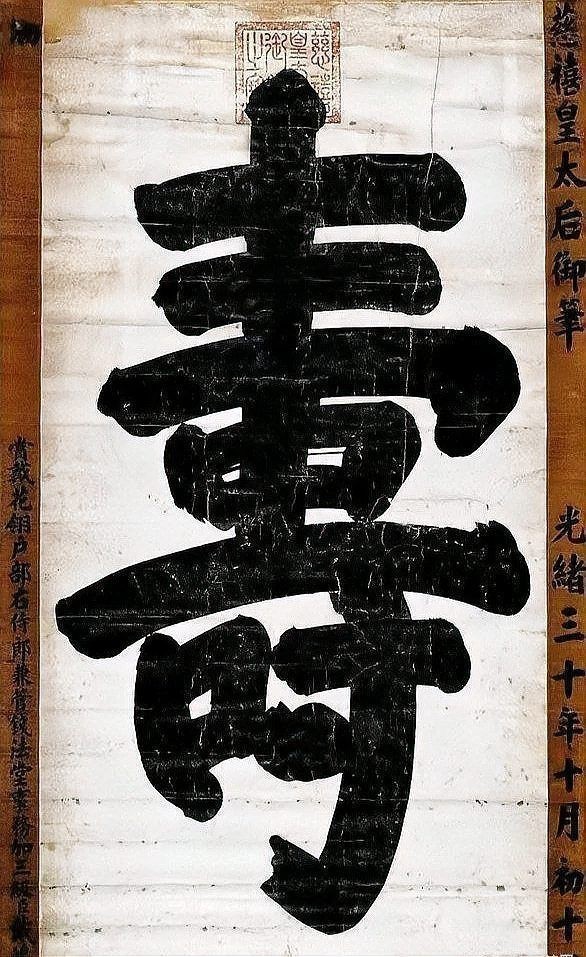 慈禧皇太后御筆
光緒三十年十月初十
壽
慈禧皇太后御筆之寶
賞戴花翎戶部右侍郎兼管錢法堂事務加三級臣戴